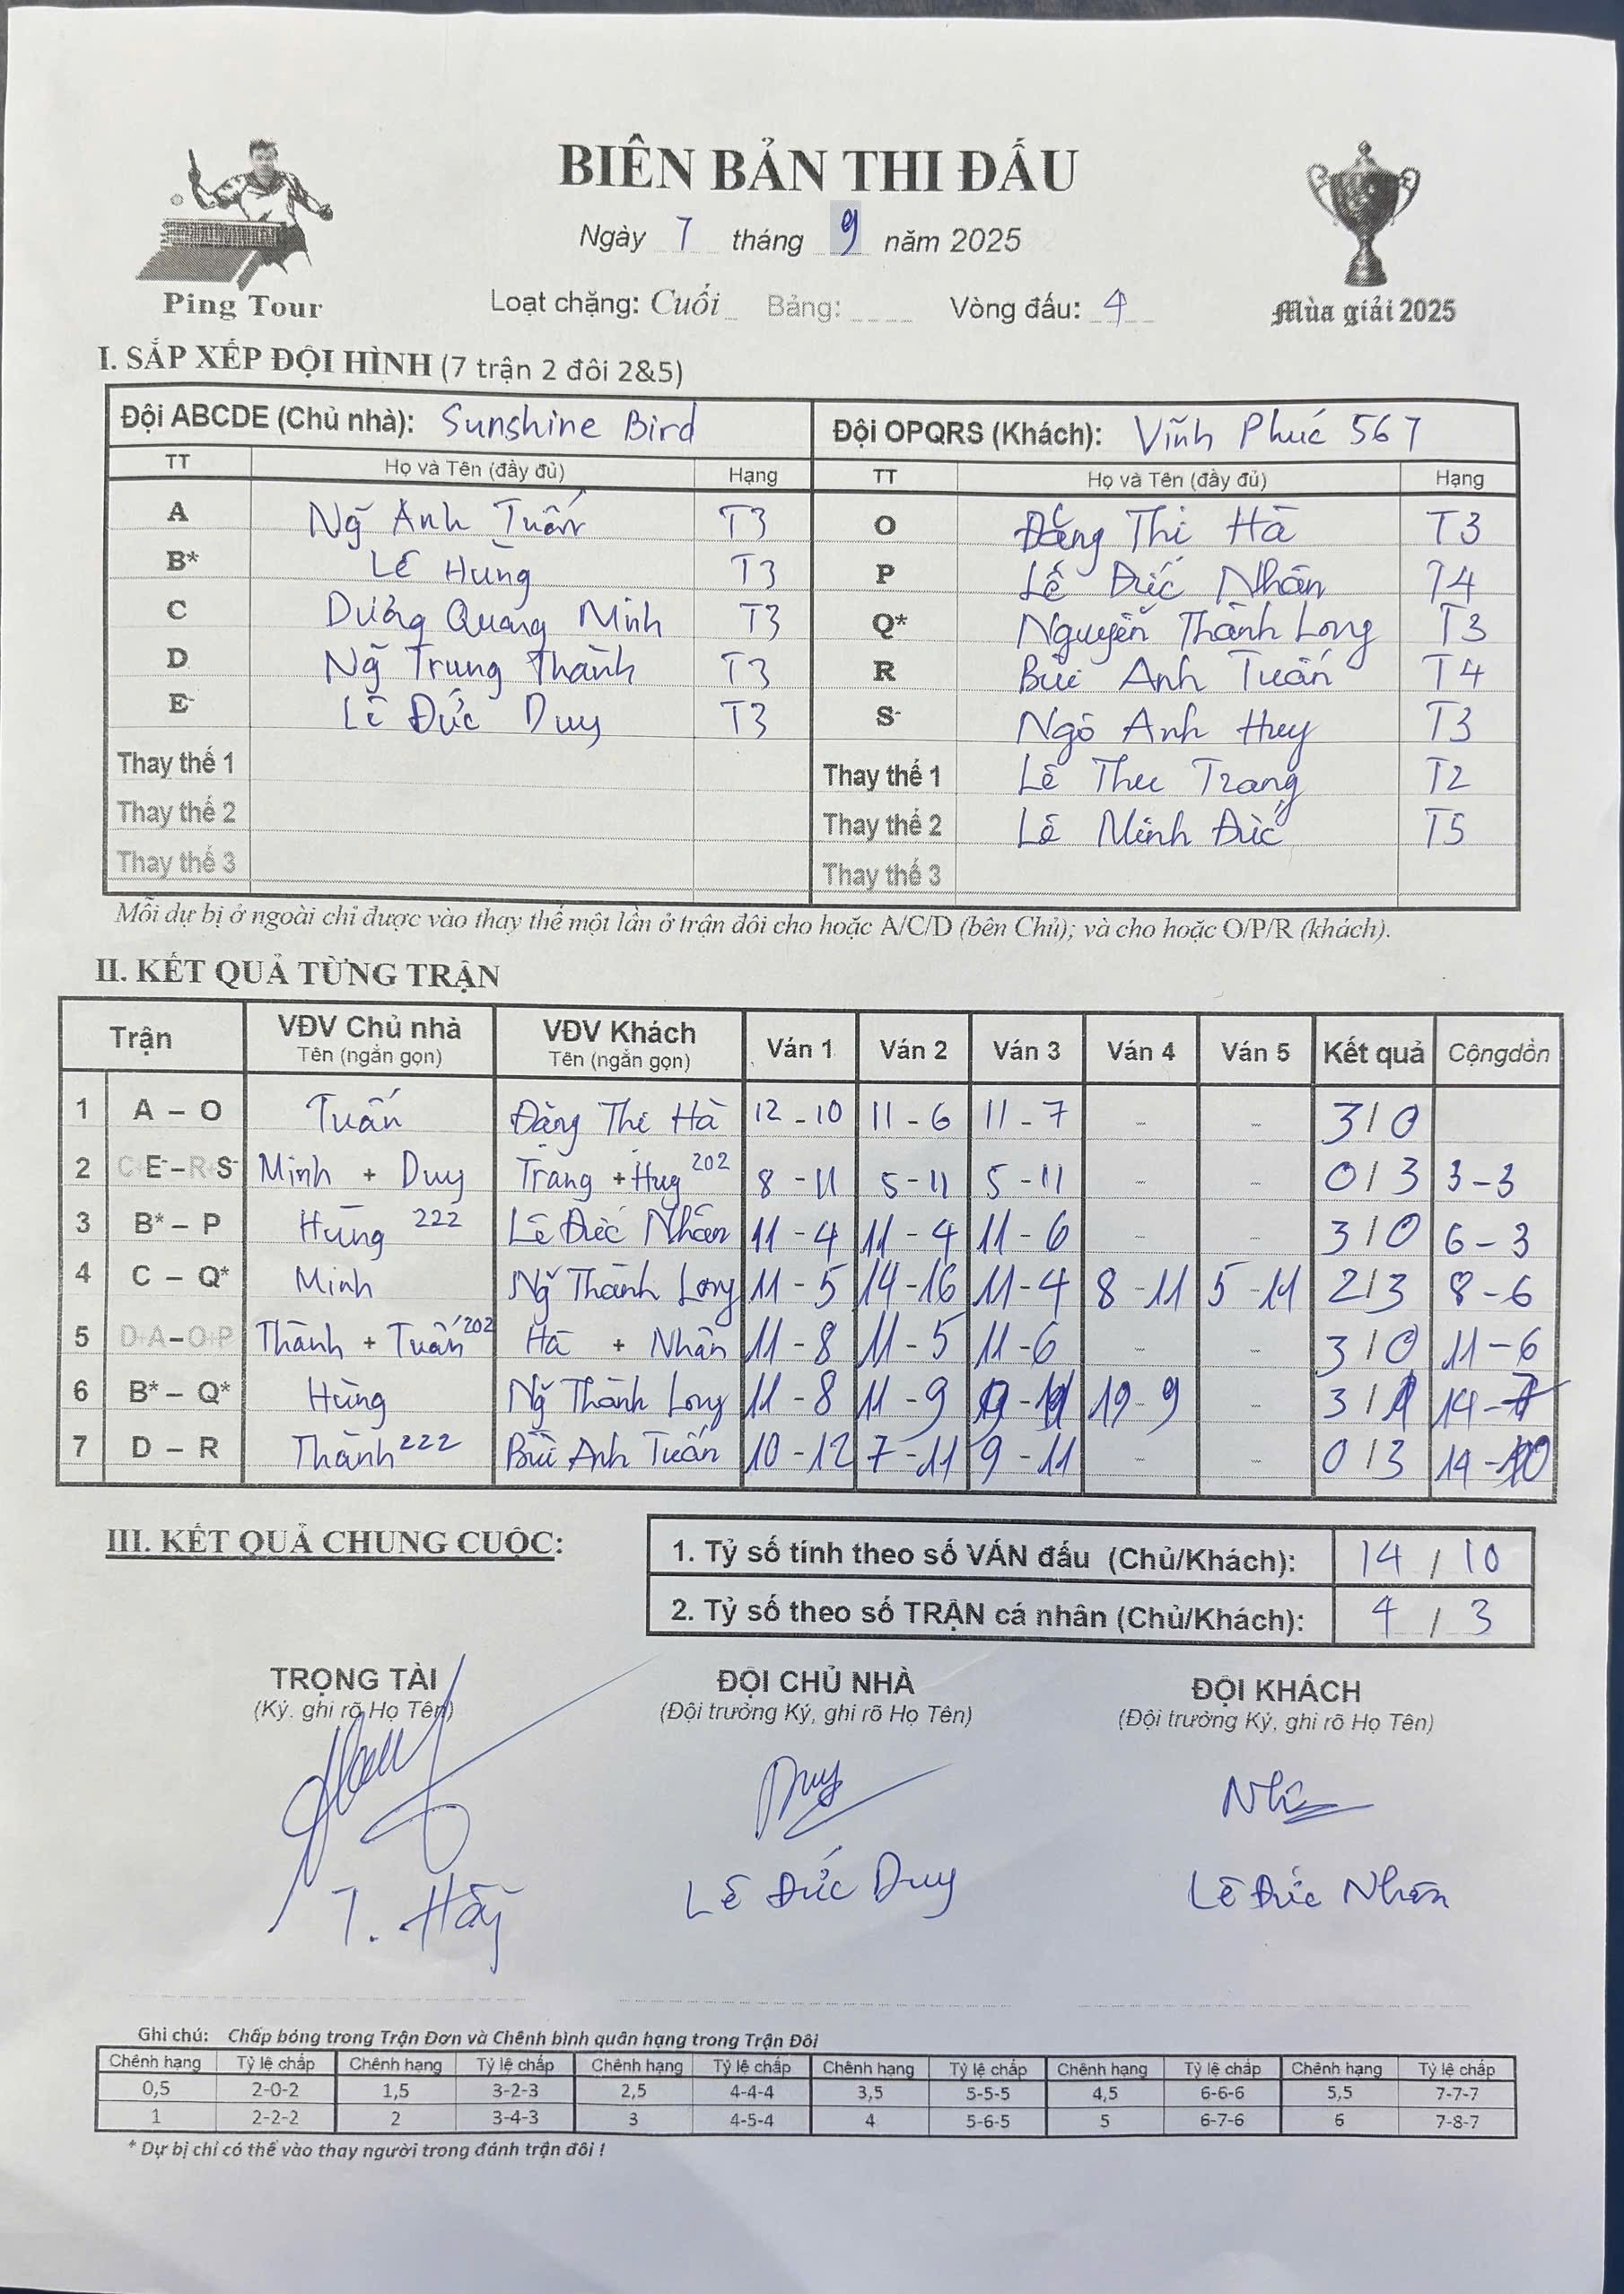 BIÊN BẢN THI ĐẤU
Ngày 7 tháng 9 năm 2025
Ping Tour
Loạt chặng: Cuối Bảng: Vòng đấu: 4
Mùa giải 2025
I. SẮP XẾP ĐỘI HÌNH (7 trận 2 đôi 2&5)
Đội ABCDE (Chủ nhà): Sunshine Bird Đội OPQRS (Khách): Vĩnh Phúc 567
TT Họ và Tên (đầy đủ) Hạng TT Họ và Tên (đầy đủ) Hạng
A Ng̃ Anh Tuấn T3 O Đặng Thị Hà T3
B* Lê Hùng T3 P Lê Đức Nhân T4
C Dương Quang Minh T3 Q* Nguyễn Thành Long T3
D Ng̃ Trung Thành T3 R Bùi Anh Tuấn T4
E- Lê Đức Duy T3 S- Ngô Anh Huy T3
Thay thế 1 Thay thế 1 Lê Thu Trang T2
Thay thế 2 Thay thế 2 Lê Minh Đức T5
Thay thế 3 Thay thế 3
Mỗi dự bị ở ngoài chỉ được vào thay thế một lần ở trận đôi cho hoặc A/C/D (bên Chủ); và cho hoặc O/P/R (khách).
II. KẾT QUẢ TỪNG TRẬN
Trận VĐV Chủ nhà Tên (ngắn gọn) VĐV Khách Tên (ngắn gọn) Ván 1 Ván 2 Ván 3 Ván 4 Ván 5 Kết quả Cộngdồn
1 A – O Tuấn Đặng Thị Hà 12 - 10 11 - 6 11 - 7 - - 3 / 0
2 C+E-–R+S- Minh + Duy Trang + Huy 202 8 - 11 5 - 11 5 - 11 - - 0 / 3 3 - 3
3 B* – P Hùng 222 Lê Đức Nhân 11 - 4 11 - 4 11 - 6 - - 3 / 0 6 - 3
4 C – Q* Minh Ng̃ Thành Long 11 - 5 14 - 16 11 - 4 8 - 11 5 - 11 2 / 3 8 - 6
5 D+A–O+P Thành + Tuấn 202 Hà + Nhân 11 - 8 11 - 5 11 - 6 - - 3 / 0 11 - 6
6 B* – Q* Hùng Ng̃ Thành Long 11 - 8 11 - 9 - 9 - 3 / 1 14 - 7
7 D – R Thành 222 Bùi Anh Tuấn 10 - 12 7 - 11 9 - 11 - - 0 / 3 14 - 10
III. KẾT QUẢ CHUNG CUỘC:
1. Tỷ số tính theo số VÁN đấu (Chủ/Khách): 14 / 10
2. Tỷ số theo số TRẬN cá nhân (Chủ/Khách): 4 / 3
TRỌNG TÀI ĐỘI CHỦ NHÀ ĐỘI KHÁCH
(Ký, ghi rõ Họ Tên) (Đội trưởng Ký, ghi rõ Họ Tên) (Đội trưởng Ký, ghi rõ Họ Tên)
Duy Nhân
T. Lê Đức Duy Lê Đức Nhân
Ghi chú: Chấp bóng trong Trận Đơn và Chênh bình quân hạng trong Trận Đôi
Chênh hạng Tỷ lệ chấp Chênh hạng Tỷ lệ chấp Chênh hạng Tỷ lệ chấp Chênh hạng Tỷ lệ chấp Chênh hạng Tỷ lệ chấp Chênh hạng Tỷ lệ chấp
0,5 2-0-2 1,5 3-2-3 2,5 4-4-4 3,5 5-5-5 4,5 6-6-6 5,5 7-7-7
1 2-2-2 2 3-4-3 3 4-5-4 4 5-6-5 5 6-7-6 6 7-8-7
* Dự bị chỉ có thể vào thay người trong đánh trận đôi !